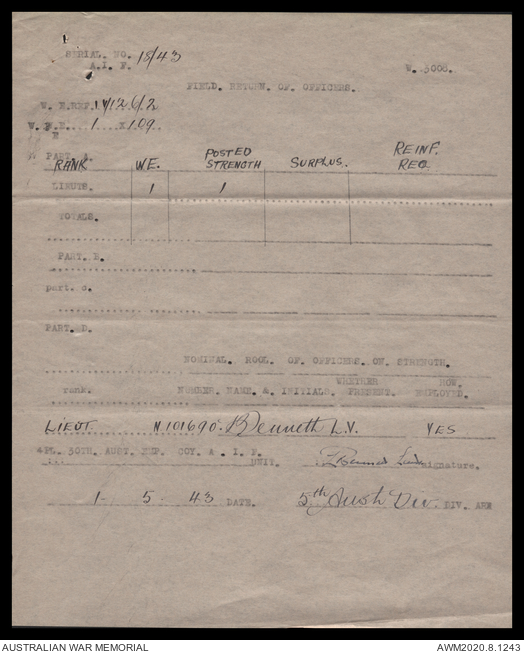 SERIAL. NO. 18/43
A. I. F.
W. 3008.
FIELD. RETURN. OF. OFFICERS.
W. E. REF. 1 Y/12.6/2
W. F. E. 1 X 109
PART. A.
RANK WE. POSTED STRENGTH SURPLUS. REINF. REQ.
LIEUTS. 1 1
TOTALS.
PART. B.
part. c.
PART. D.
NOMINAL. ROOL. OF OFFICERS. ON. STRENGTH.
WHETHER HOW.
rank. NUMBER. NAME. & INITIALS. PRESENT. EMPLOYED.
LIEUT N101690. Bennett L.V. YES
4PL. 30TH. AUST. EMP. COY. A. I. F. UNIT. signature.
1- 5- 43 DATE. 5th Aust Div. DIV. ARE
AUSTRALIAN WAR MEMORIAL AWM2020.8.1243